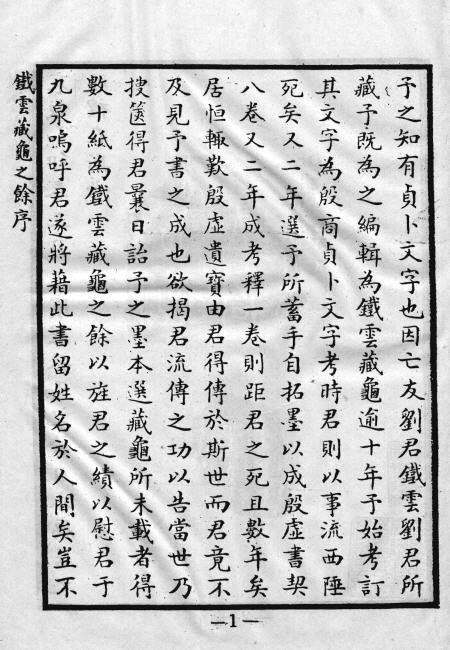 予之知有貞卜文字也因亡友劉君鐵雲劉君所
藏予既為之編輯為鐵雲藏龜逾十年予始考訂
其文字為殷商貞卜文字考時君則以事流西陲
死矣又二年選予所蓄手自拓墨以成殷虛書契
八卷又二年成考釋一卷則距君之死且數年矣
居恒輒歎殷虛遺寶由君得傳於斯世而君竟不
及見予書之成也欲揭君流傳之功以告當世乃
搜篋得君曩日詒予之墨本選藏龜所未載者得
數十紙為鐵雲藏龜之餘以旌君之績以慰君于
九泉嗚呼君遂將藉此書留姓名於人間矣豈不
鐵雲藏龜之餘序
—1—